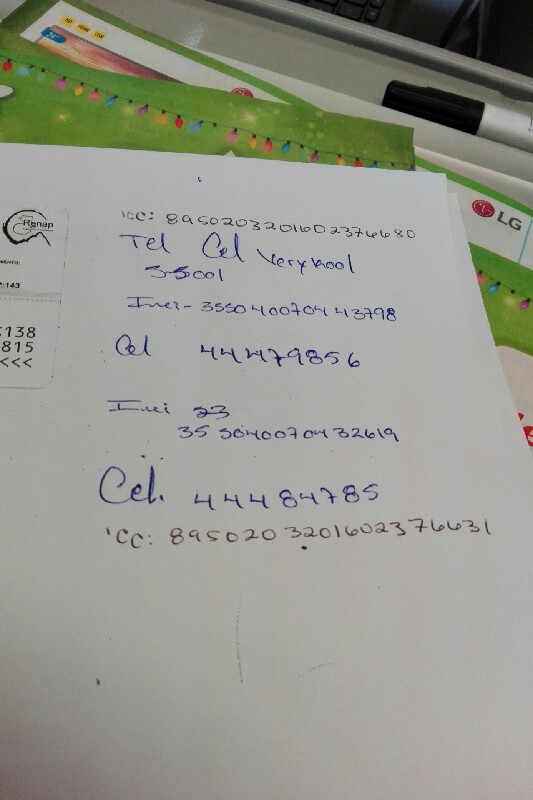 LG
Renap
:143
:138
815
<<<
ICC: 8950203201602376680
Tel Cel Verykool
S-5001
Imei - 355040070443798
Cel 44479856
Imei 23
355040070432619
Cel. 44484785
ICC: 8950203201602376631